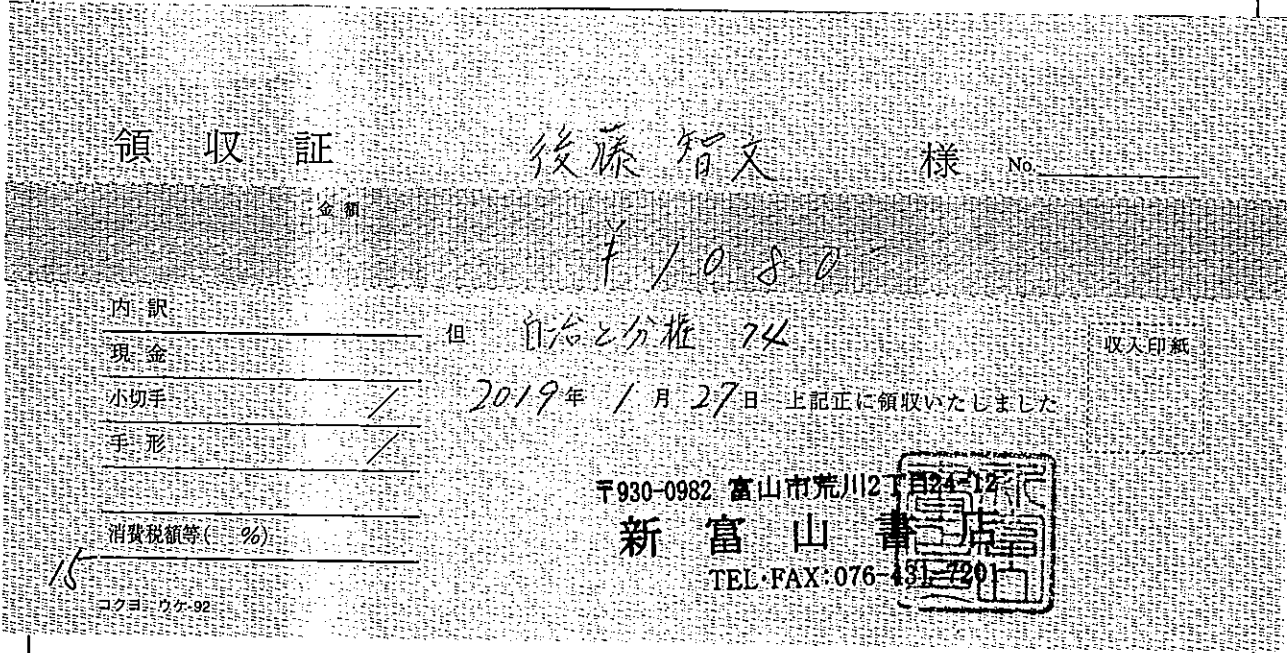 領収証 後藤 智文 様 No.
金額
¥1080-
内訳
現金
小切手
手形
消費税額等( %)
但 自治と分権 74
収入印紙
2019年 1月27日 上記正に領収いたしました
〒930-0982 富山市荒川2丁目24-12
新富山書店
TEL・FAX:076-431-7201
15
コクヨ ウケ-92